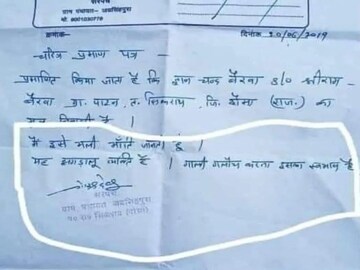 सरपंच
ग्राम पंचायत जयसिंहपुरा
क्रमांक- दिनांक 20/05/2019
चरित्र प्रमाण पत्र
प्रमाणित किया जाता है कि ज्ञान चन्द बैरवा S/O श्रीराम
बैरवा ग्रा. पाटन, त. सिकराय, जि. दौसा (राज.) का
है ।
मैं इसे भली भाँति जानता हूँ ।
यह झगड़ालू व्यक्ति है । गाली गलौच करना इसका स्वभाव है
सरपंच
ग्राम पंचायत जयसिंहपुरा
सिकराय (दौसा)